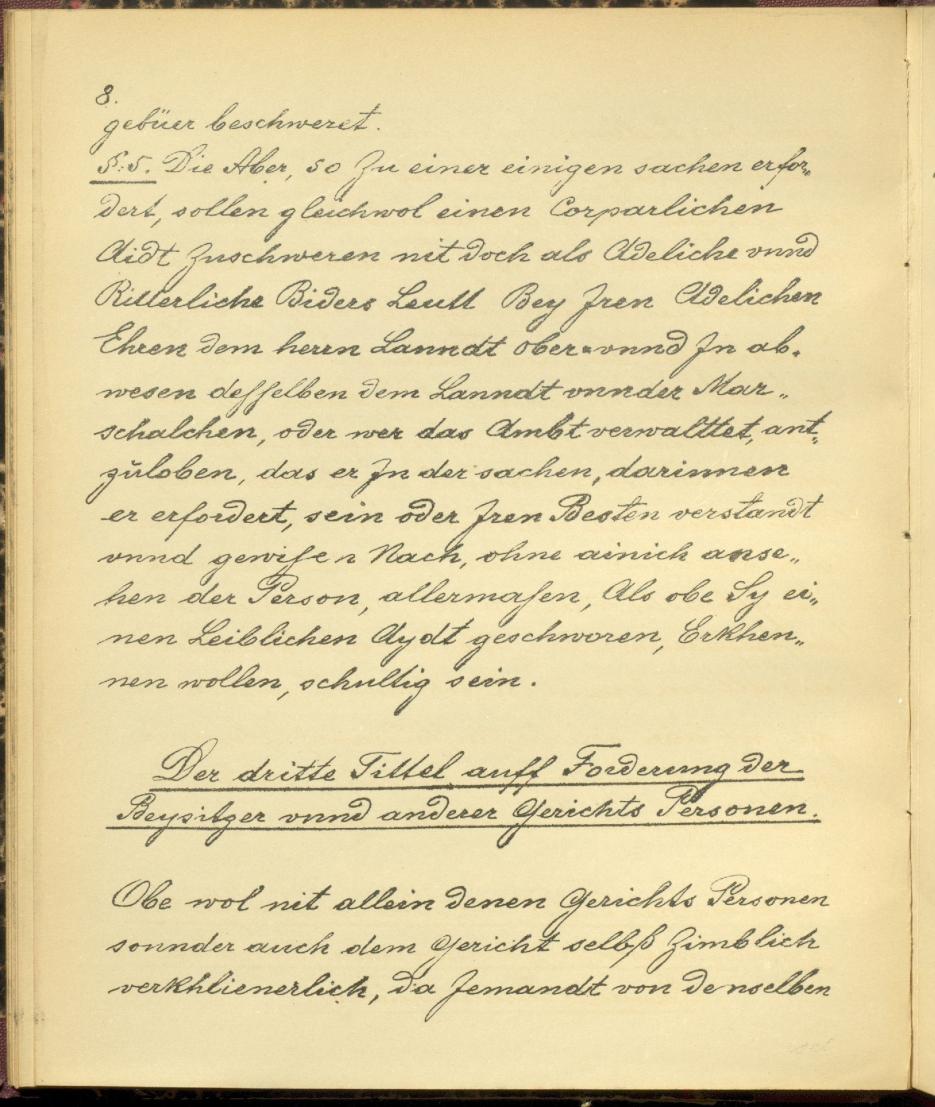 8.
gebüer beschweret.
§:5. Die Aber, so Zu einer einigen sachen erfor„
dert, sollen gleichwol einen Corparlichen
Aidt Zuschweren nit doch als Adeliche vnnd
Ritterliche Biders Leutt Bey Jren Adelichen
Ehren dem herrn Lanndt ober=vnnd Jn ab„
wesen desselben dem Lanndt vnnder Mar„
schalchen, oder wer das Ambt verwalttet, ant„
zuloben, das er Jn der sachen, darinnen
er erfordert, sein oder Jren Besten verstandt
vnnd gewisen Nach, ohne ainich anse„
hen der Person, allermasen, Als obe Sy ei„
nen Leiblichen Aydt geschworen, Erkhen„
nen wollen, schultig sein.
Der dritte Tittel auff Forderung der
Beysitzer vnnd anderer Gerichts Personen.
Obe wol nit allein denen Gerichts Personen
sonnder auch dem Gericht selbß Zimblich
verkhlienerlich, da Jemandt von denselben